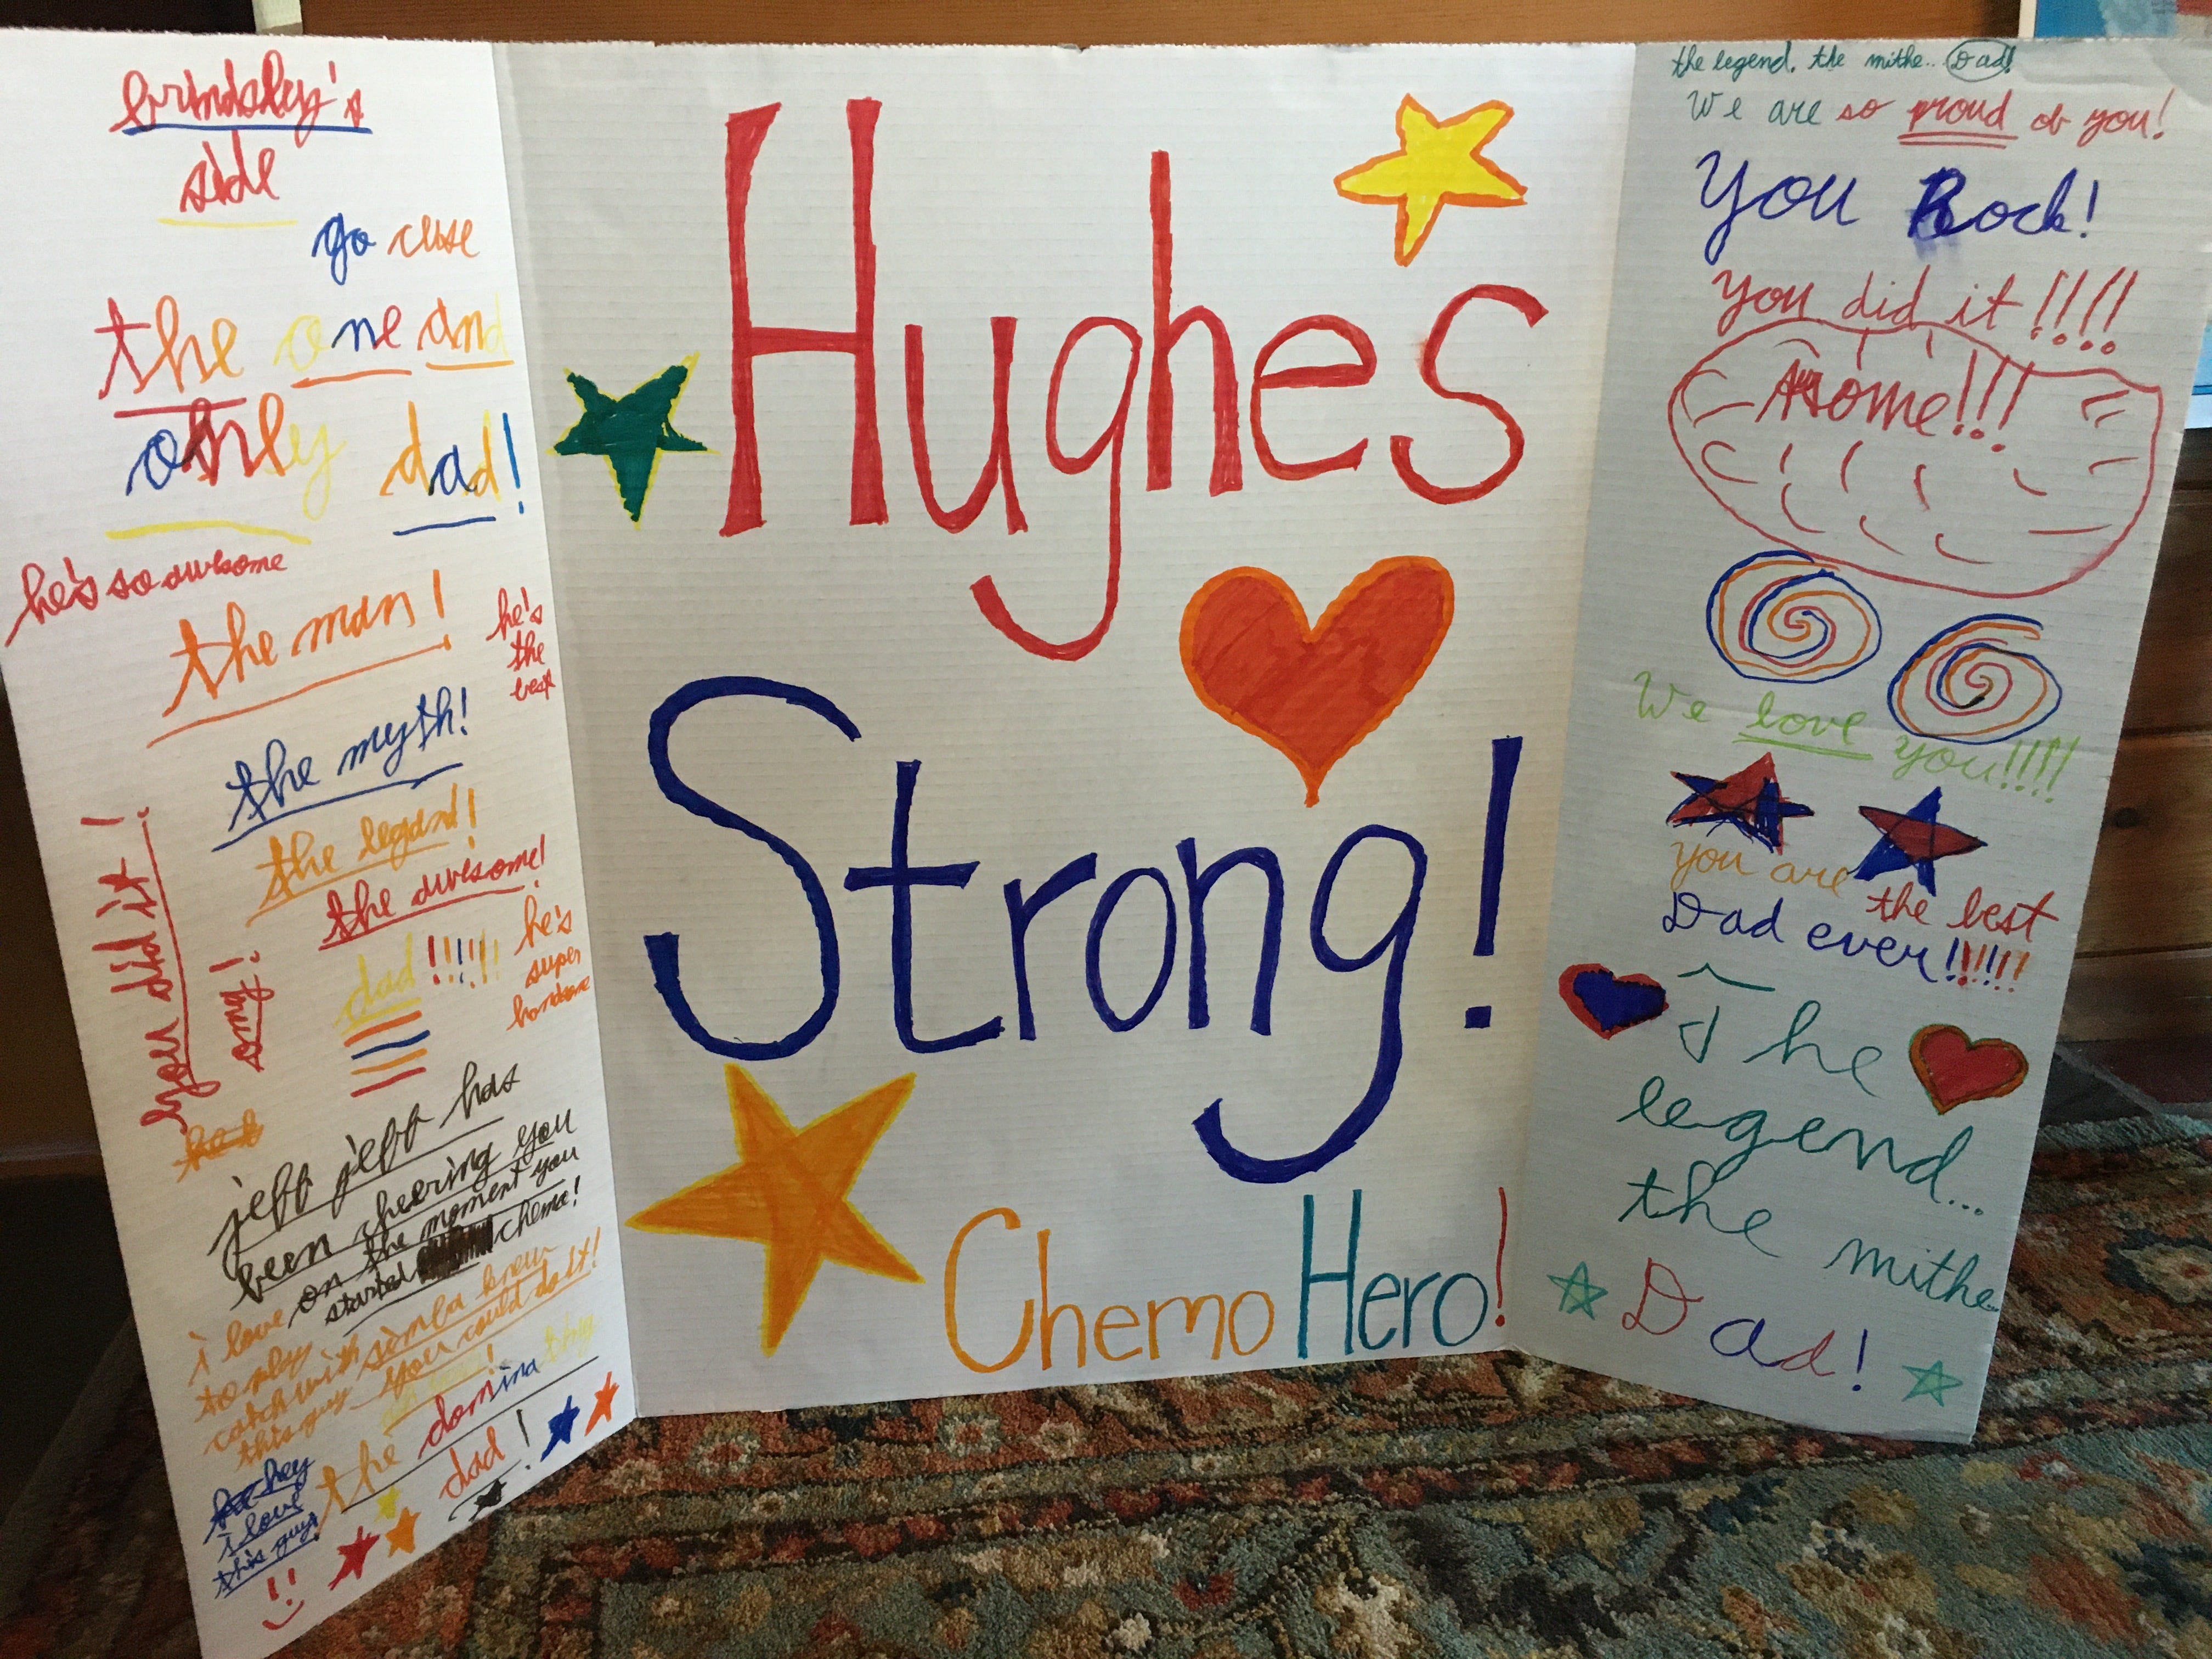 brindsley's
side
go cuse
the one and
only dad!
he's so awesome
the man!
he's
the
best
the myth!
the legend!
the awesome!
dad!!!!!!
he's
super
handsome
you did it!
jeff jeff has
been cheering you
on the moment you
started chemo!
i love
to play
catch with
this guy
simba knew
you could do it!
the domina
dad!
hey
i love
this guy!
Hughes
Strong!
Chemo Hero!
the legend. the mithe.. Dad!
We are so proud of you!
You Rock!
you did it!!!!
Home!!!
We love you!!!!
you are the best
Dad ever!!!!!!
The
legend...
the mithe
Dad!